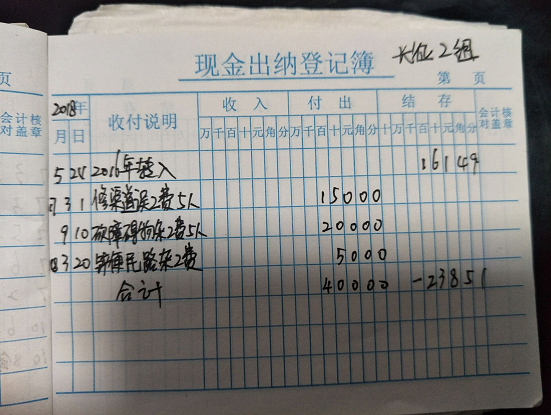 现金出纳登记簿 长征2组
第 页
页
2018年 收付说明 收入 付出 结存 会计核对盖章
会计核对盖章
月 日 万千百十元角分 万千百十元角分 万千百十元角分
5 24 2016年转入 16149
7 31 修渠道误工费5人 15000
9 10 砍障碍物杂工费5人 20000
3 20 便民路杂工费 5000
合计 40000 -23851